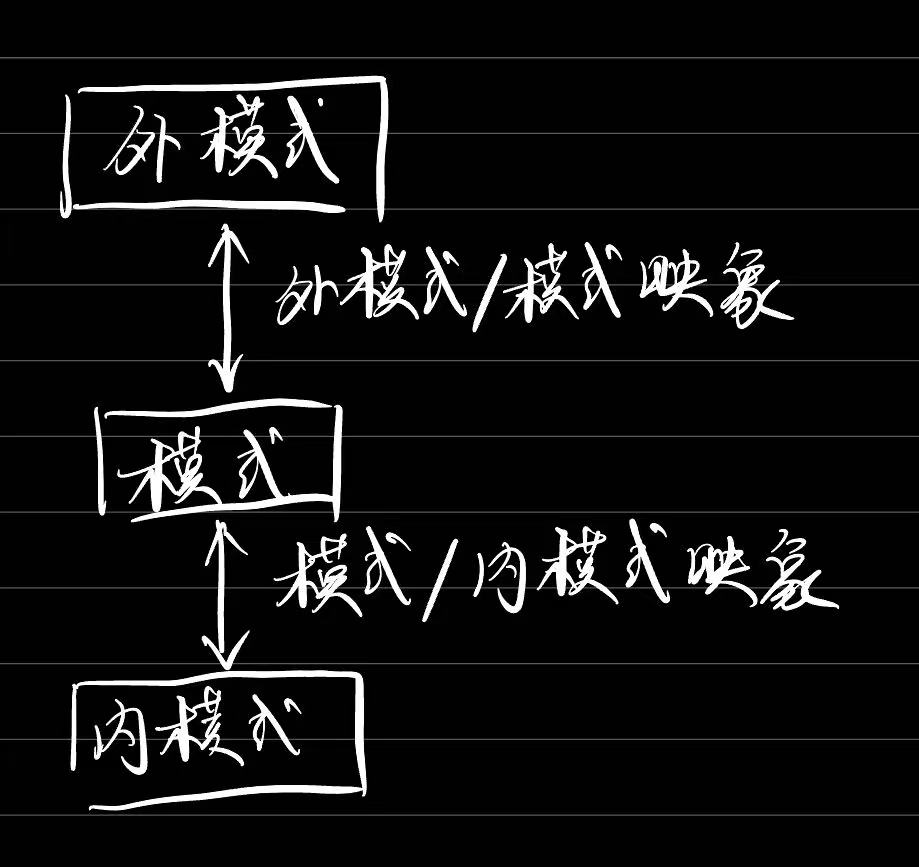 外模式
外模式/模式映象
模式
模式/内模式映象
内模式